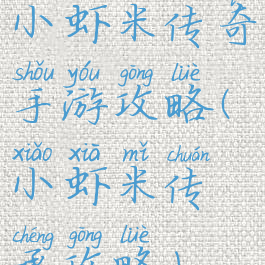 小虾米传奇
shǒu yóu gōng lüè
手游攻略(
xiǎo xiā mǐ chuán
小虾米传
chéng gōng lüè
攻略)